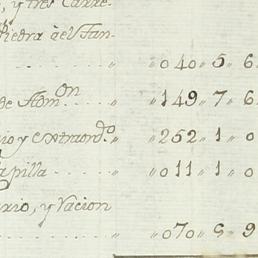 y tres Carre-
Piedra del Tan-
" 040 " 5 " 6
de Hom.on " " 149 " 7 " 6
rio y extraord.o " " 252 " 1 " 0
apilla " " 011 " 1 " 0
ario, y Vacion
" " 070 " 5 " 9